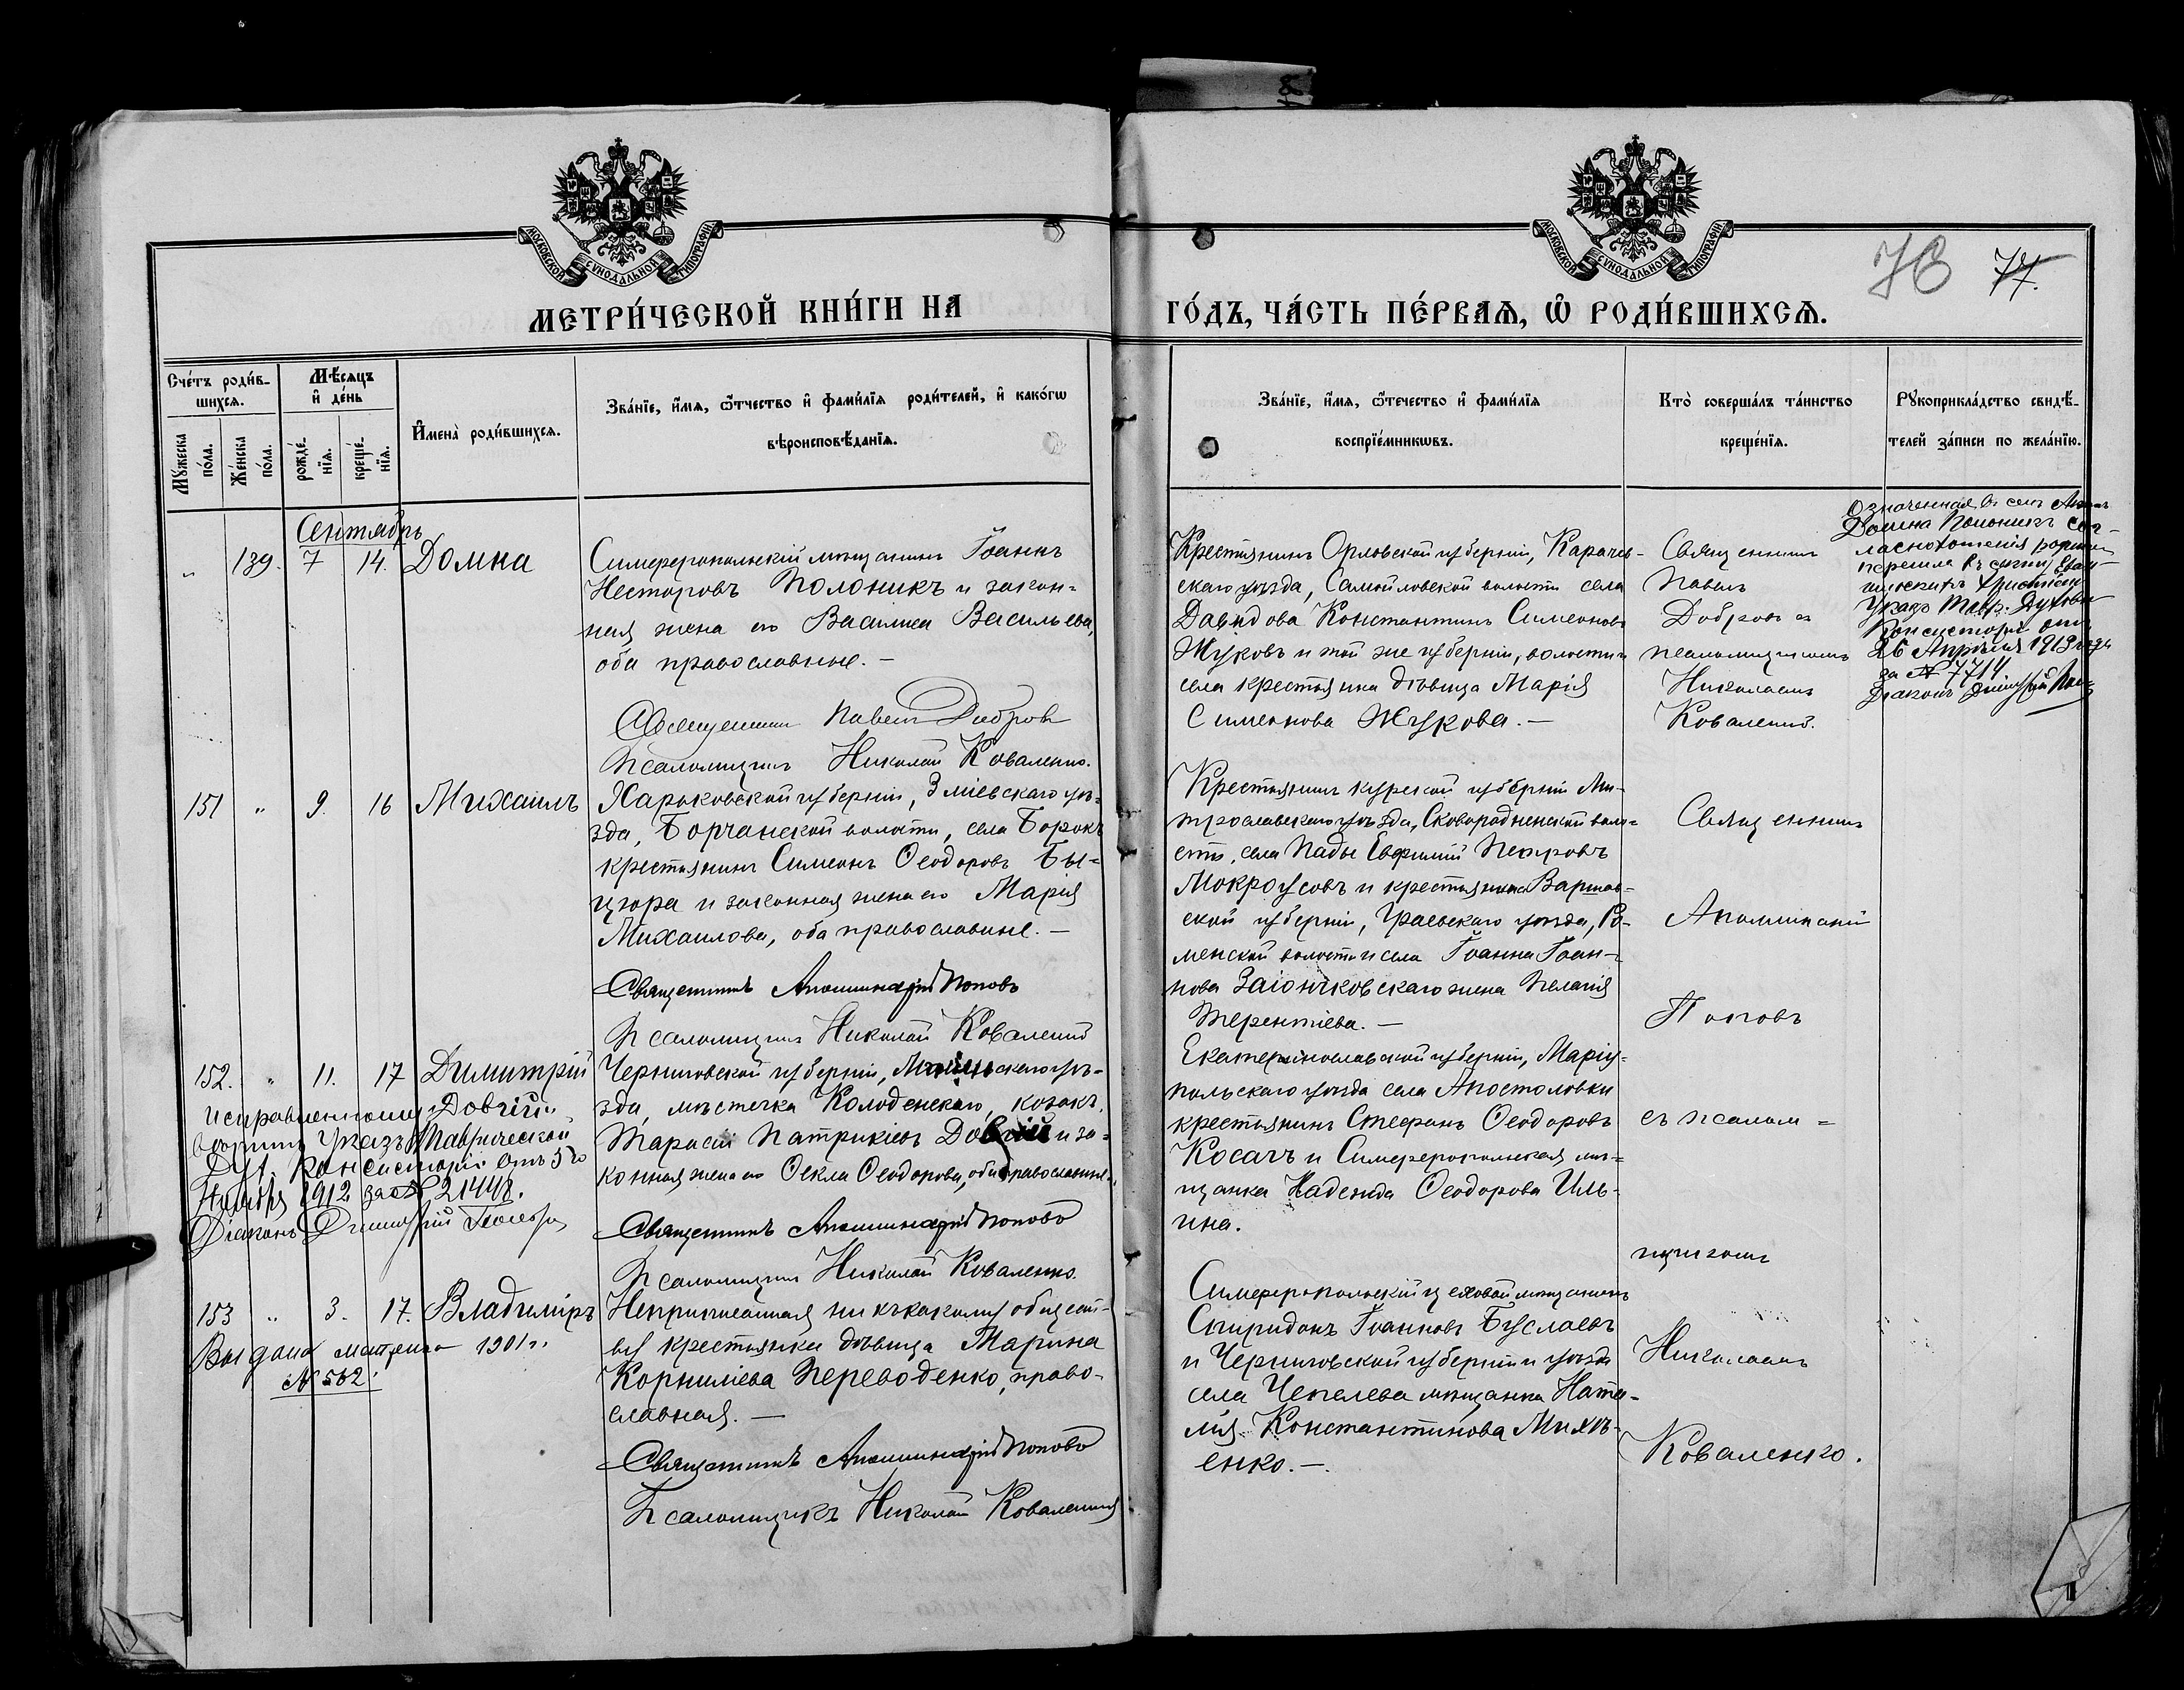 МОСКОВСКОЙ СУНОДАЛЬНОЙ ТИПОГРАФІИ
МОСКОВСКОЙ СУНОДАЛЬНОЙ ТИПОГРАФІИ
78 77.
МЕТРИ́ЧЕСКОЙ КНИ́ГИ НА
ГО́ДЪ, ЧА́СТЬ ПЕ́РВАѦ, Ѡ҆ РОДИ́ВШИХСѦ.
Сче́тъ роди́в-
шихсѧ.
Мѣ́сѧцъ
и҆ де́нь
Му́жеска
по́ла.
Же́нска
по́ла.
рожде́-
нїѧ.
креще́-
нїѧ.
И҆мена̀ роди́вшихсѧ.
Зва́нїе, и҆́мѧ, ѻ҆́тчество и҆ фами́лїѧ роди́телей, и҆ како́гѡ
вѣроисповѣ́данїѧ.
Зва́нїе, и҆́мѧ, ѻ҆́течество и҆ фами́лїѧ
воспрїе́мникѡвъ.
Кто̀ соверша́лъ та́инство
креще́нїѧ.
Рꙋкоприкла́дство свидѣ́-
телей за́писи по жела́нїю.
Сентябрь
" 139. 7 14. Домна
Симферопольскій мѣщанинъ Іоаннъ
Несторовъ Полоникъ и закон-
ная жена его Василиса Васильева,
оба православные. —
Священникъ Павелъ Добровъ
Псаломщикъ Николай Коваленко.
Крестьянинъ Орловской губерніи, Карачев-
скаго уѣзда, Самойловской волости села
Давидова Константинъ Симеоновъ
Жуковъ и той же губерніи, волости и
села крестьянка дѣвица Марія
Симеонова Жукова. —
Священникъ
Павелъ
Добровъ съ
псаломщикомъ
Николаемъ
Коваленко.
Означенная въ семъ
Домна Полоникъ
перешла въ
Указъ Тавр. Духовн.
Консисторіи отъ
26 Апрѣля 1913 года
за № 7714
Діаконъ Димитрій
151 " 9. 16 Михаилъ
Харьковской губерніи, Зміевскаго уѣ-
зда, Борчанской волости, села Борокъ
крестьянинъ Симеонъ Ѳеодоровъ Бы-
цюра и законная жена его Марія
Михаилова, оба православные. —
Священникъ Аполлинарій Поповъ
Псаломщикъ Николай Коваленко
Крестьянинъ Курской губерніи Ми-
трославскаго уѣзда, Сковородненской воло-
сти, села Пады Евфимій Петровъ
Мокроусовъ и крестьянина Варшав-
ской губерніи, Граевскаго уѣзда, Ро-
менской волости и села Іоанна Іоан-
нова Заіончковскаго жена Пелагія
Терентіева. —
Священникъ
Аполлинарій
Поповъ
152. " 11. 17 Димитрій
Исправленному "Довгій"
вѣрить Указъ Таврической
Дух. Консисторіи отъ 5го
Ноября 1912 за № 21448.
Діаконъ Димитрій
Черниговской губерніи, уѣ-
зда, мѣстечка Колоденскаго, козакъ
Тарасій Патрикіевъ Довгій и за-
конная жена его Ѳекла Ѳеодорова, оба православные.
Священникъ Аполлинарій Поповъ
Псаломщикъ Николай Коваленко.
Екатеринославской губерніи, Маріу-
польскаго уѣзда села Апостоловки
крестьянинъ Стефанъ Ѳеодоровъ
Косачъ и Симферопольская мѣ-
щанка Надежда Ѳеодорова Иль-
ина.
съ псалом-
щикомъ
153 " 3. 17. Владиміръ
Выдана метрика 1901 г.
№ 562.
Неприписанная ни къ какому общест-
ву крестьянка дѣвица Марина
Корниліева Переводенко, право-
славная. —
Священникъ Аполлинарій Поповъ
Псаломщикъ Николай Коваленко
Симферопольскій цеховой мѣщанинъ
Спиридонъ Іоанновъ Буслаевъ
и Черниговской губерніи и уѣзда
села Чепелева мѣщанка Ната-
лія Константинова Михѣ-
енко. —.
Николаемъ
Коваленко.